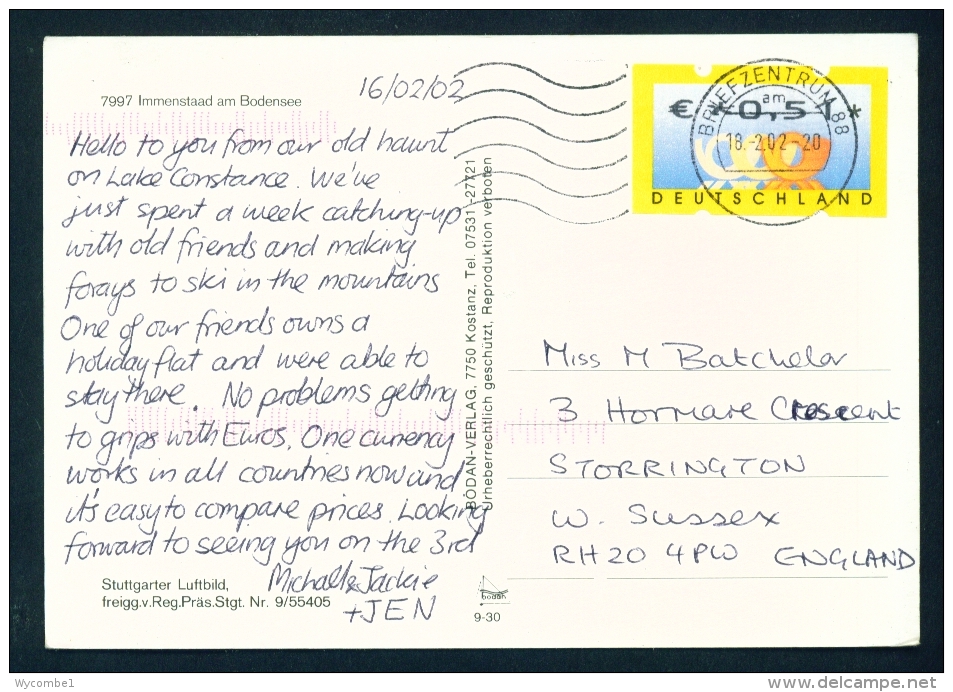 7997 Immenstaad am Bodensee
16/02/02
Hello to you from our old haunt
on Lake Constance. We've
just spent a week catching-up
with old friends and making
forays to ski in the mountains
One of our friends owns a
holiday flat and were able to
stay there. No problems getting
to grips with Euros. One currency
works in all countries now and
it's easy to compare prices. Looking
forward to seeing you on the 3rd
& Jackie
+ JEN
Stuttgarter Luftbild,
freigg.v.Reg.Präs.Stgt. Nr. 9/55405
BODAN-VERLAG, 7750 Kostanz, Tel. 07531-27721
Urheberrechtlich geschützt, Reproduktion verboten
bodan
9-30
BRIEFZENTRUM 88
am
18.-2.02-20
€ *0,51*
DEUTSCHLAND
Miss M Batchelor
3 Hormare Crescent
STORRINGTON
W. Sussex
RH20 4PW ENGLAND
Wycombe1
www.delcampe.net